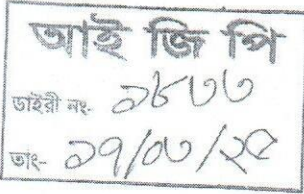 আই জি পি
ডাইরী নং- ১৮৩৩
তাং- ১৭/০৩/২৫